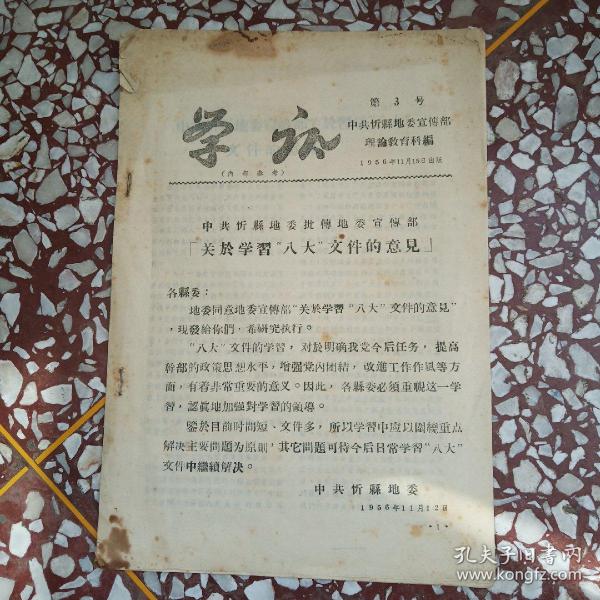 第3号
学讯
(内部参考)
中共忻縣地委宣傳部
理論教育科編
1956年11月15日出版
中共忻縣地委批轉地委宣傳部
「关於学習“八大”文件的意見」
各縣委：
地委同意地委宣傳部“关於学習“八大”文件的意見”
，现發給你們，希研究执行。
“八大”文件的学習，对於明确我党今后任务，提高
幹部的政策思想水平，增强党內团結，改進工作作風等方
面，有着非常重要的意义。因此，各縣委必須重視这一学
習，認眞地加强对学習的領導。
鉴於目前时間短、文件多，所以学習中应以圍繞重点
解决主要問題为原則，其它問題可待今后日常学習“八大”
文件中繼續解决。
中共忻縣地委
1956年11月12日
·1·
孔夫子旧书网
www.kongfz.com